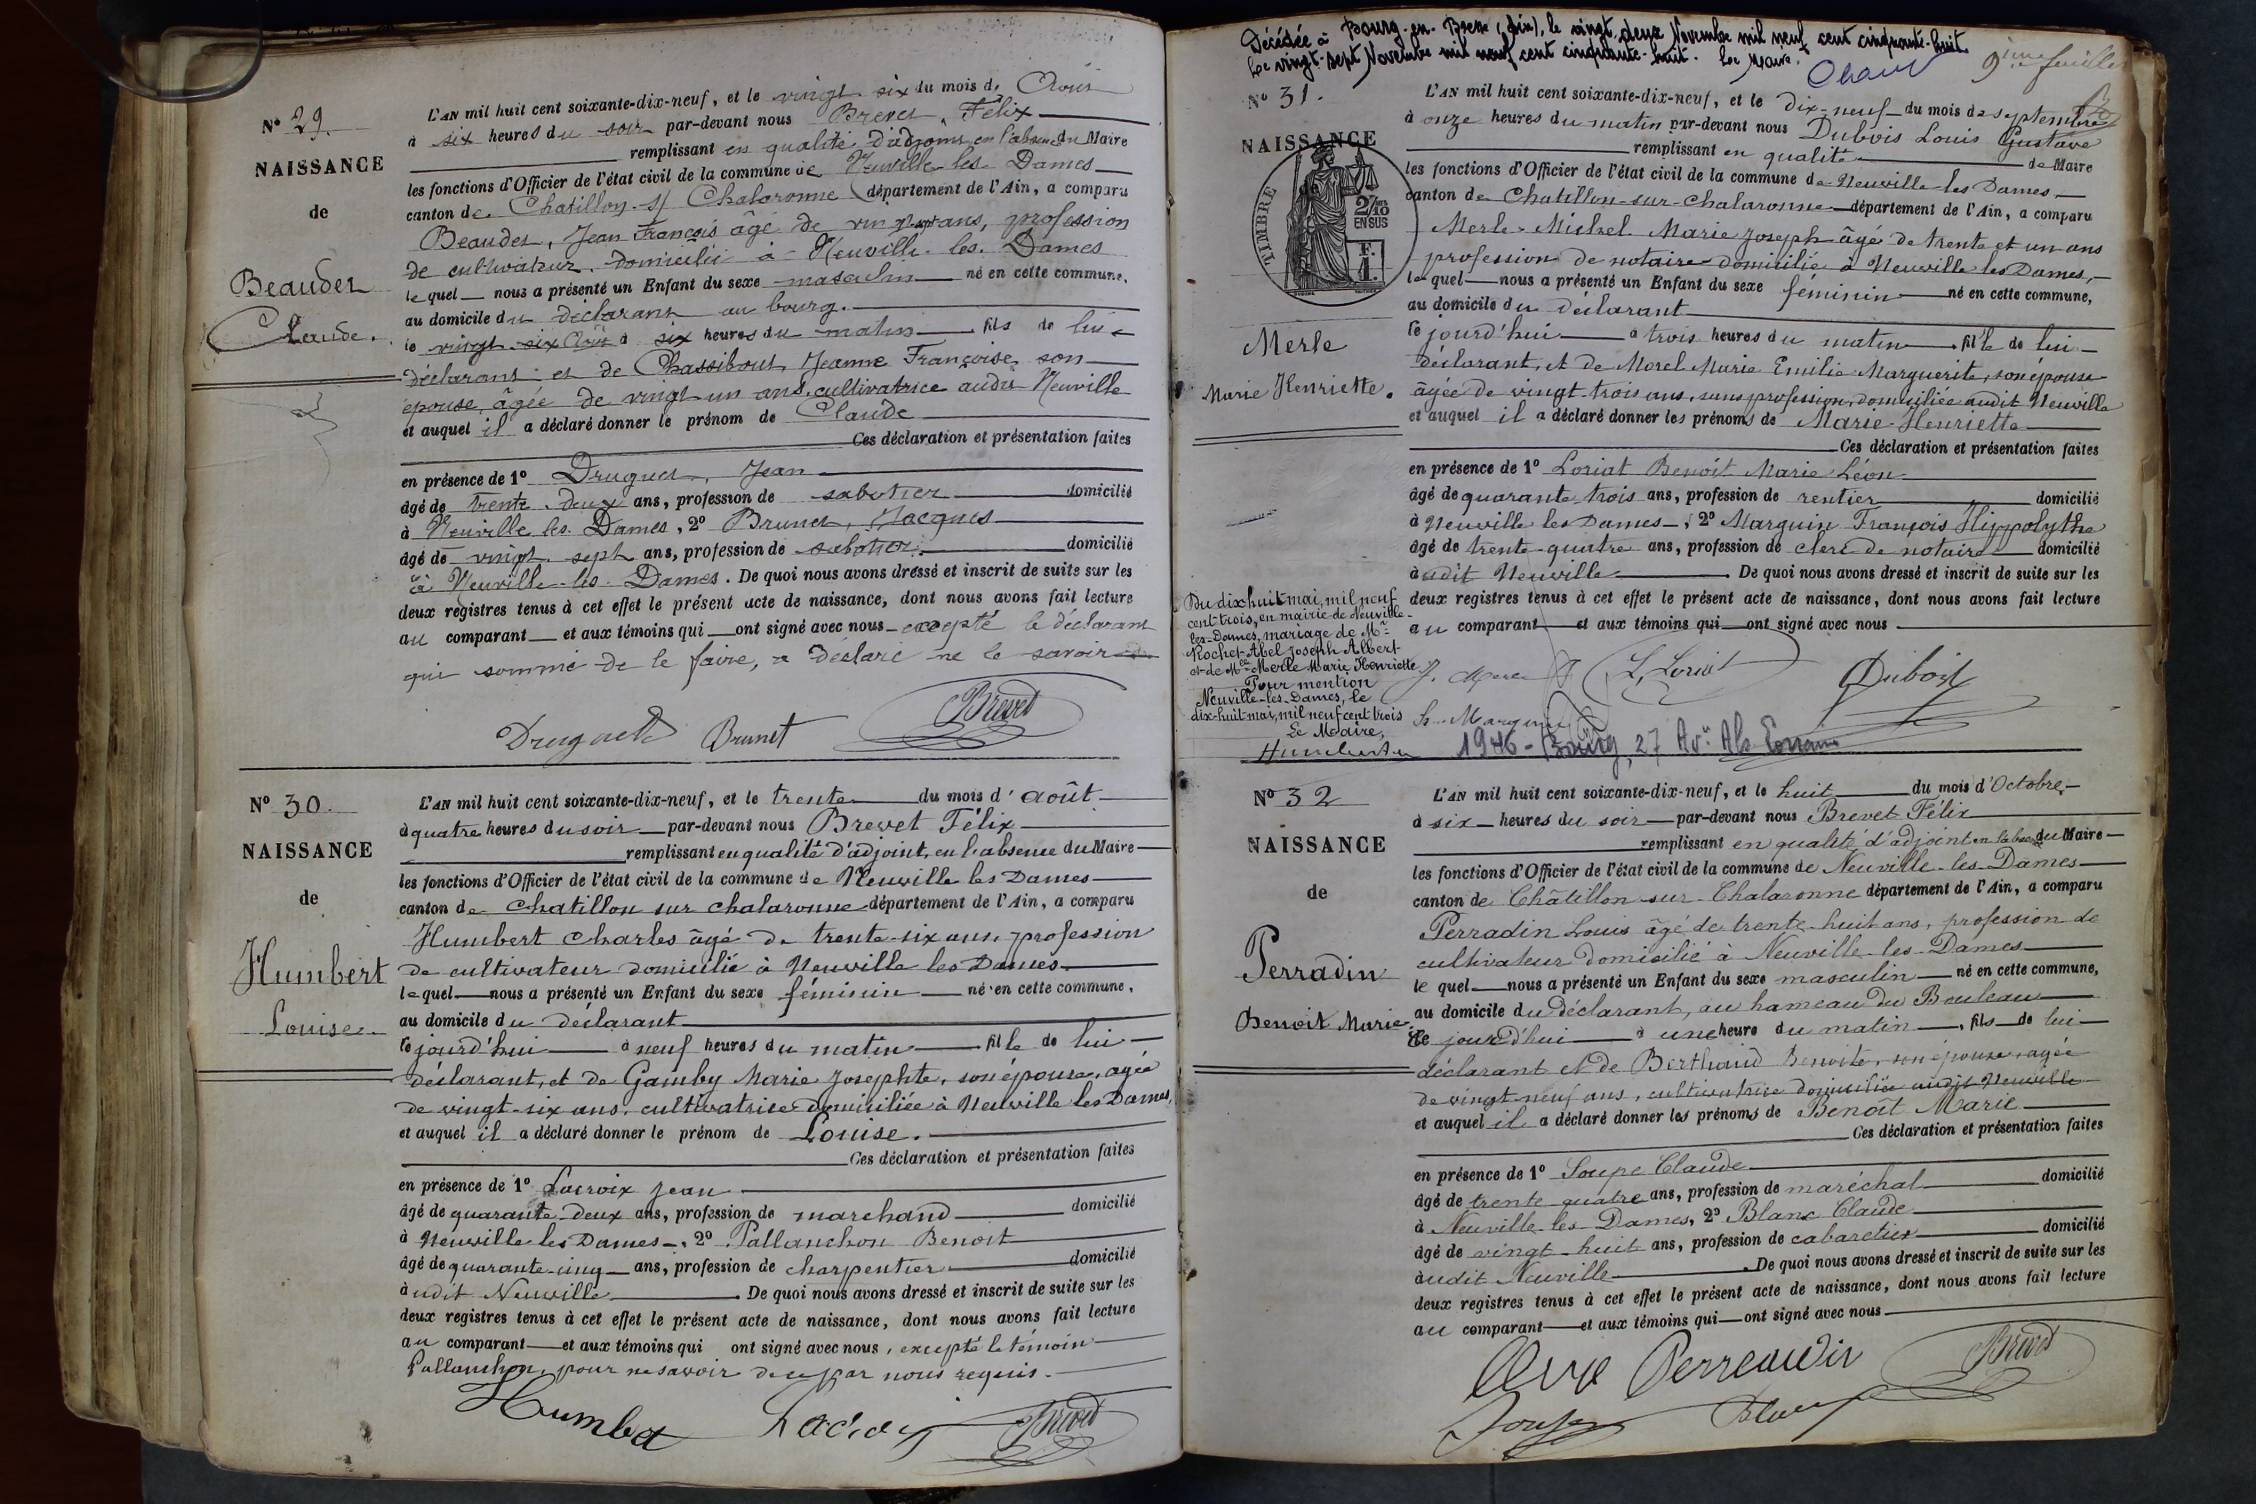 Nº 29.
NAISSANCE
de
Beaudet
Claude.
L'AN mil huit cent soixante-dix-neuf, et le vingt six du mois d' Août
à six heures du soir par-devant nous Brevet, Félix
remplissant en qualité d'adjoint en l'absence du Maire
les fonctions d'Officier de l'état civil de la commune de Neuville les Dames
canton de Chatillon s/ Chalaronne département de l'Ain, a comparu
Beaudet, Jean François âgé de vingt ans, profession
de cultivateur domicilié à Neuville les Dames
lequel nous a présenté un Enfant du sexe masculin né en cette commune,
au domicile du déclarant au bourg.
le vingt six Août à six heures du matin fils de lui
déclarant et de Chassibout, Jeanne Françoise, son
épouse, âgée de vingt un ans, cultivatrice audit Neuville
et auquel il a déclaré donner le prénom de Claude
Ces déclaration et présentation faites
en présence de 1º Druguet, Jean
âgé de trente deux ans, profession de sabotier domicilié
à Neuville les Dames, 2º Brunet, Jacques
âgé de vingt sept ans, profession de sabotier domicilié
à Neuville les Dames. De quoi nous avons dressé et inscrit de suite sur les
deux registres tenus à cet effet le présent acte de naissance, dont nous avons fait lecture
au comparant et aux témoins qui ont signé avec nous excepté le déclarant
qui sommé de le faire, a déclaré ne le savoir
Druguet Brunet Brevet
Nº 30.
NAISSANCE
de
Humbert
Louise.
L'AN mil huit cent soixante-dix-neuf, et le trente du mois d' août
à quatre heures du soir par-devant nous Brevet Félix
remplissant en qualité d'adjoint, en l'absence du Maire
les fonctions d'Officier de l'état civil de la commune de Neuville les Dames
canton de Chatillon sur Chalaronne département de l'Ain, a comparu
Humbert Charles âgé de trente-six ans, profession
de cultivateur domicilié à Neuville les Dames
lequel nous a présenté un Enfant du sexe féminin né en cette commune,
au domicile du déclarant
ce jourd'hui à neuf heures du matin fille de lui
déclarant, et de Gamby Marie Josephte, son épouse, agée
de vingt-six ans, cultivatrice domiciliée à Neuville les Dames,
et auquel il a déclaré donner le prénom de Louise.
Ces déclaration et présentation faites
en présence de 1º Lacroix Jean
âgé de quarante deux ans, profession de marchand domicilié
à Neuville les Dames, 2º Pallanchon Benoit
âgé de quarante-cinq ans, profession de charpentier domicilié
audit Neuville. De quoi nous avons dressé et inscrit de suite sur les
deux registres tenus à cet effet le présent acte de naissance, dont nous avons fait lecture
au comparant et aux témoins qui ont signé avec nous, excepté le témoin
Pallanchon, pour ne savoir de ce par nous requis.
Humbert Lacroix Brevet
Décédée à Bourg-en-Bresse (Ain), le vingt deux Novembre mil neuf cent cinquante-huit.
Le vingt-sept Novembre mil neuf cent cinquante-huit. Le Maire.
9ième feuillet
Nº 31.
NAISSANCE
de
TIMBRE
2/10
EN SUS
F.
1.
Merle
Marie Henriette.
L'AN mil huit cent soixante-dix-neuf, et le dix-neuf du mois de septembre
à onze heures du matin par-devant nous Dubois Louis Gustave
remplissant en qualité de Maire
les fonctions d'Officier de l'état civil de la commune de Neuville les Dames
canton de Chatillon-sur-Chalaronne département de l'Ain, a comparu
Merle Michel Marie Joseph âgé de trente et un ans
profession de notaire domicilié à Neuville les Dames,
lequel nous a présenté un Enfant du sexe féminin né en cette commune,
au domicile du déclarant
ce jourd'hui à trois heures du matin fille de lui
déclarant, et de Morel Marie Emilie Marguerite, son épouse
âgée de vingt trois ans, sans profession, domiciliée audit Neuville
et auquel il a déclaré donner les prénoms de Marie-Henriette
Ces déclaration et présentation faites
en présence de 1º Loriat Benoît Marie Léon
âgé de quarante trois ans, profession de rentier domicilié
à Neuville les Dames, 2º Marguin François Hippolythe
âgé de trente-quatre ans, profession de clerc de notaire domicilié
audit Neuville. De quoi nous avons dressé et inscrit de suite sur les
deux registres tenus à cet effet le présent acte de naissance, dont nous avons fait lecture
au comparant et aux témoins qui ont signé avec nous
Du dix huit mai, mil neuf
cent trois, en mairie de Neuville-
les-Dames, mariage de Mr
Rochet Abel Joseph Albert
et de Mlle Merle Marie Henriette
Pour mention
Neuville-les-Dames, le
dix-huit mai, mil neuf cent trois
Le Maire,
J. Merle L. Loriat Dubois
h. Marguin
1946 - Bourg, 27 Av. Als Lorraine
Nº 32
NAISSANCE
de
Perradin
Benoit Marie.
L'AN mil huit cent soixante-dix-neuf, et le huit du mois d'Octobre
à six heures du soir par-devant nous Brevet Félix
remplissant en qualité d'adjoint en l'absence du Maire
les fonctions d'Officier de l'état civil de la commune de Neuville-les-Dames
canton de Châtillon-sur-Chalaronne département de l'Ain, a comparu
Perradin Louis âgé de trente-huit ans, profession de
cultivateur domicilié à Neuville-les-Dames
lequel nous a présenté un Enfant du sexe masculin né en cette commune,
au domicile du déclarant, au hameau du Bouleau
Ce jourd'hui à une heure du matin, fils de lui
déclarant et de Berthaud Benoite, son épouse, agée
de vingt-neuf ans, cultivatrice domiciliée audit Neuville
et auquel il a déclaré donner les prénoms de Benoît Marie
Ces déclaration et présentation faites
en présence de 1º Soupe Claude
âgé de trente quatre ans, profession de maréchal domicilié
à Neuville-les-Dames, 2º Blanc Claude
âgé de vingt-huit ans, profession de cabaretier domicilié
audit Neuville. De quoi nous avons dressé et inscrit de suite sur les
deux registres tenus à cet effet le présent acte de naissance, dont nous avons fait lecture
au comparant et aux témoins qui ont signé avec nous
Perreaudin Brevet
Soupe Blanc